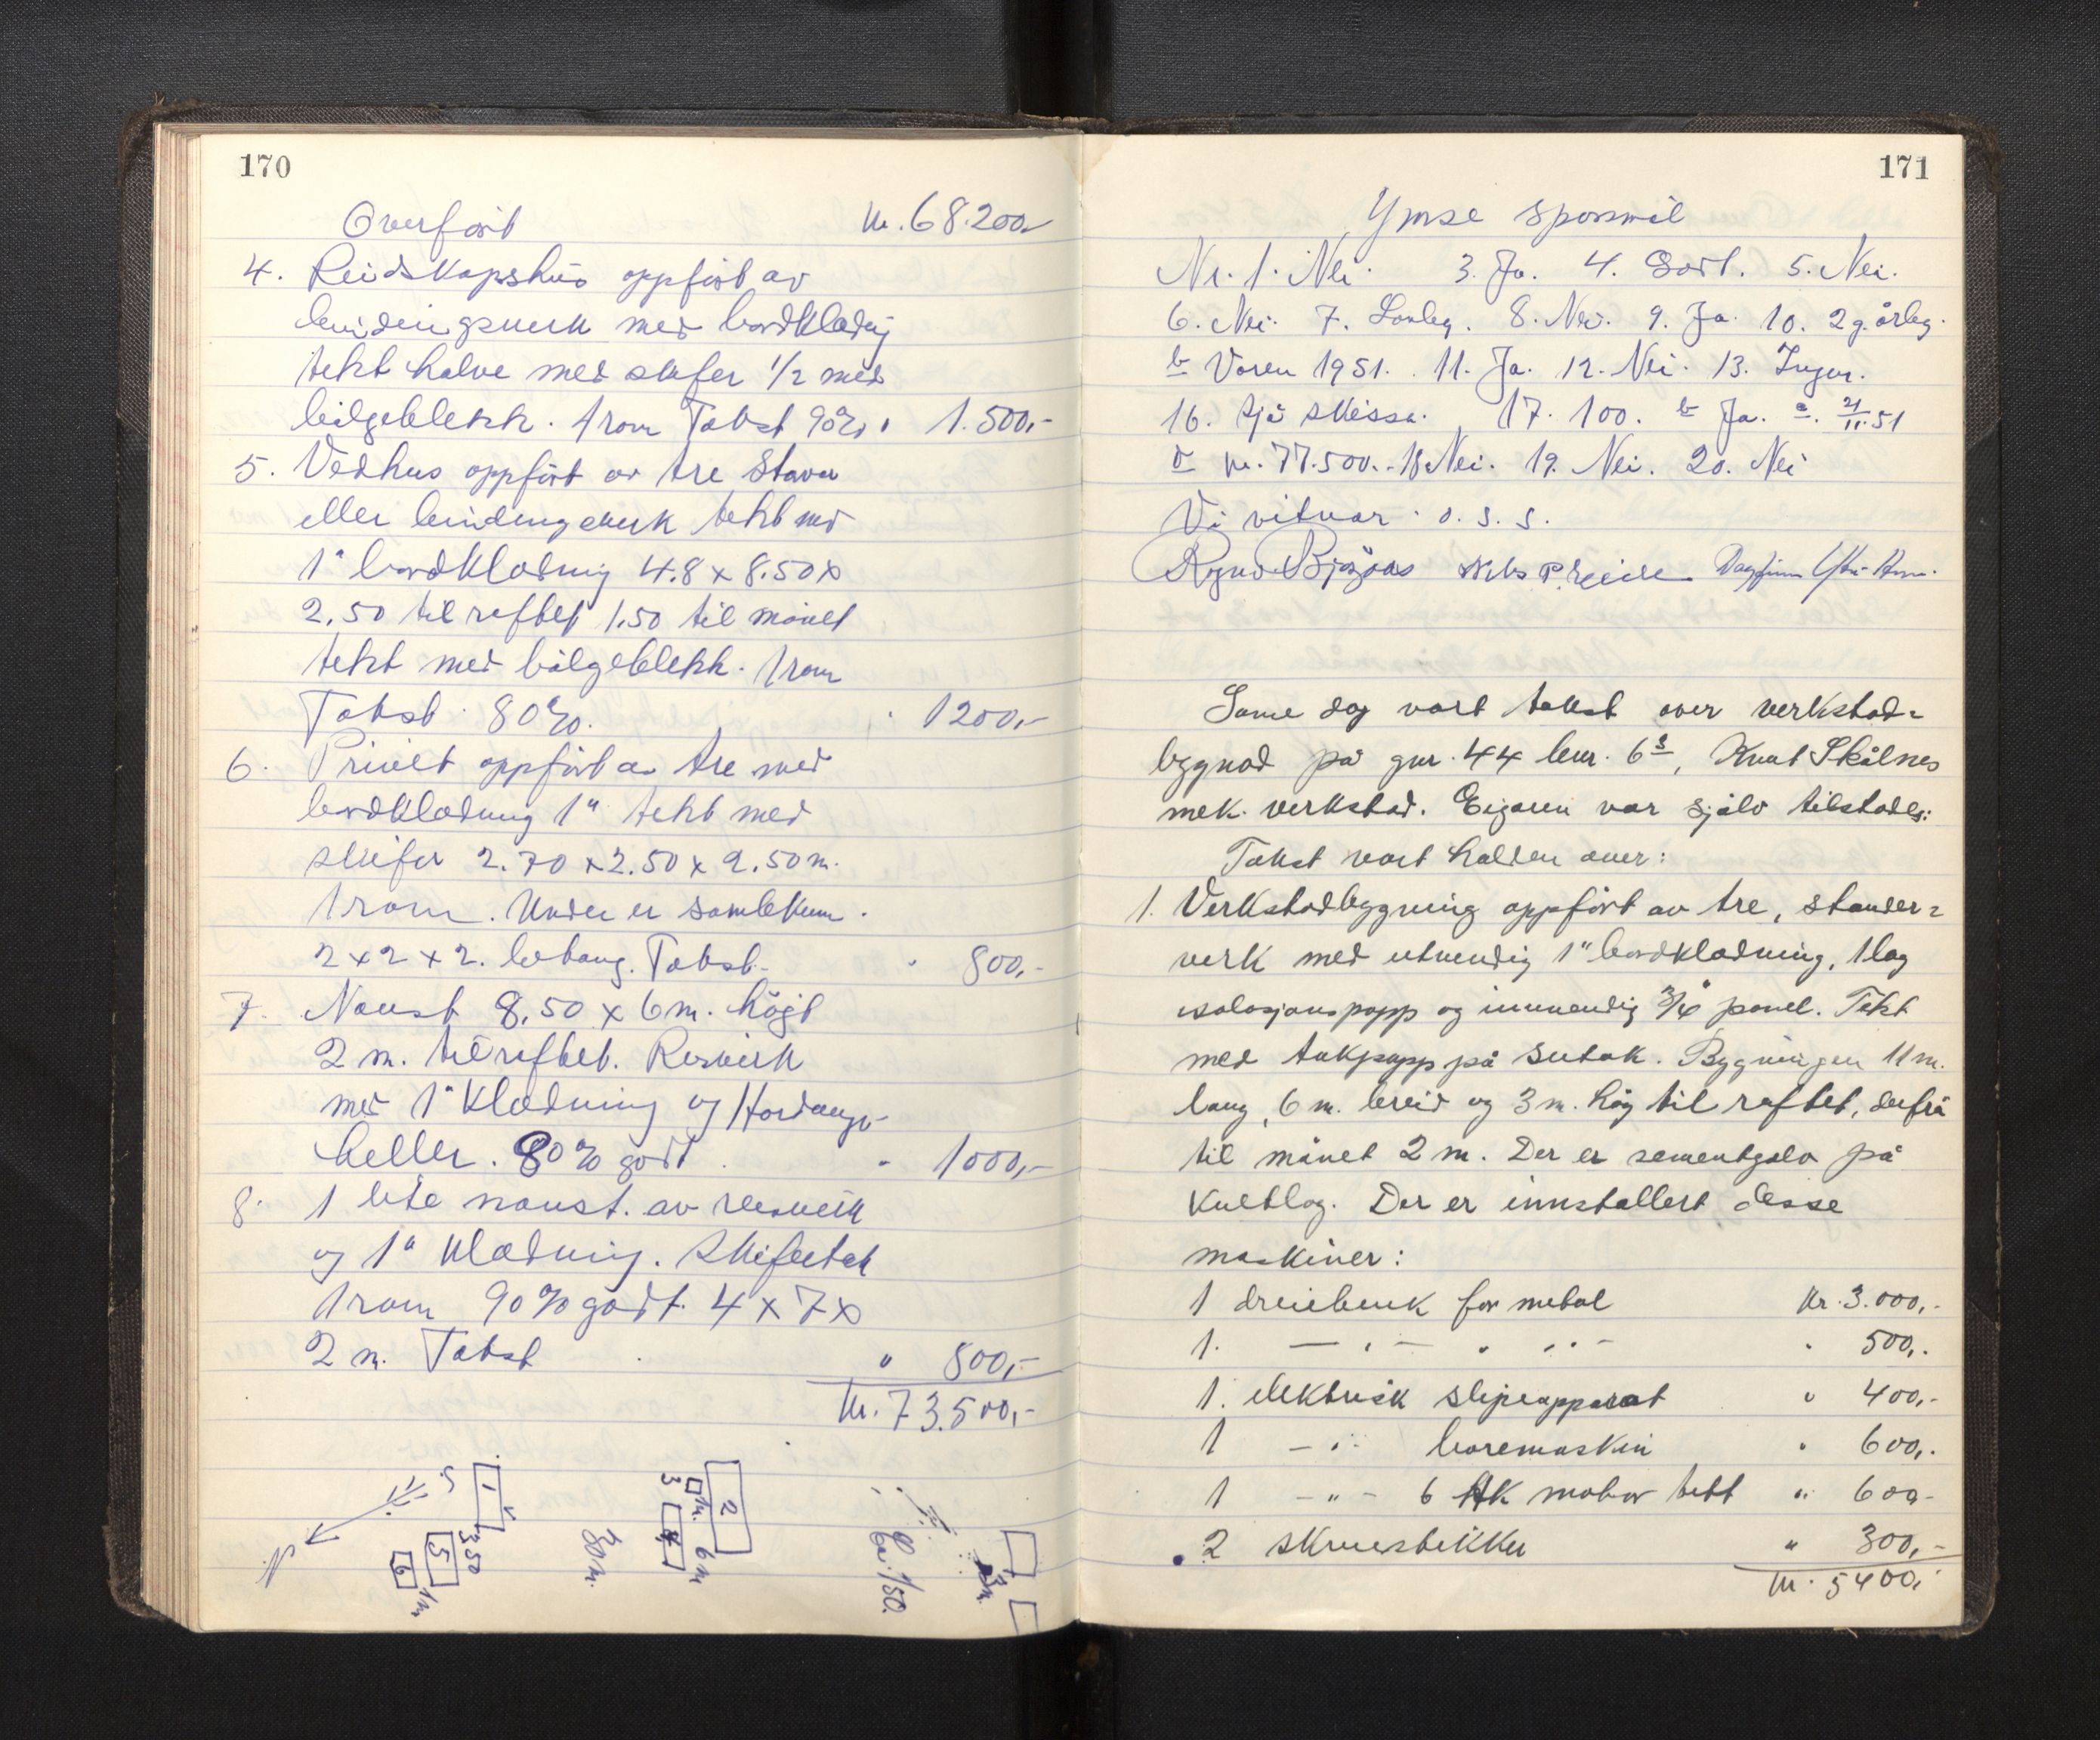 170
Overført kr. 68.200,-
4. Reidskapshus oppført av
bindingsverk med bordklædnig
tekt halve med skifer 1/2 med
bølgeblekk. 1 rom Takst 90% " 1.500,-
5. Vedhus oppført av tre Stavar
eller bindingsverk tekt med
1" bordklædnig 4.8 x 8.50 x
2.50 til raftet 1.50 til mønet
tekt med bølgeblekk. 1 rom
Takst 80%. " 1200,-
6. Privet oppført av tre med
bordklædning 1" tekt med
skifer 2.70 x 2.50 x 2.50 m.
1 rom. Under er samlekum.
2 x 2 x 2. betong. Takst " 800,-
7. Naust 8,50 x 6 m. høgt
2 m. til raftet. Reisverk
med 1" klædning og Hardang-
heller. 80% godt " 1000,-
8. 1 lite naust. av reisverk
og 1" klædnig. Skifertak
1 rom 90% godt. 4 x 7 x
2 m. Takst " 800,-
kr. 73.500,-
N S 1 3.50 5 6 1 m.
30 m.
2 3 1 m. 4 6 m
Ca. 1/50.
3 m.
171
Ymse spørsmål
Nr. 1. Nei. 3. Ja. 4. Godt. 5. Nei.
6. Nei. 7. Lovleg. 8. Nei. 9. Ja. 10. 2 g. årleg.
b Våren 1951. 11. Ja. 12. Nei. 13. Ingen.
16. Sjå skissa. 17. 100. b Ja. c. 21/11.51
d kr. 77.500.- 18 Nei. 19. Nei. 20. Nei
Vi vitnar o. s. s.
Nils P.
Same dag vart takst over verkstad-
bygnad på gnr. 44 bnr. 63, Knut Skålnes
mek. verkstad. Eigaren var sjølv tilstades:
Takst vart halden over:
1. Verkstadbygning oppført av tre, stender-
verk med utvendig 1" bordklædning, 1 lag
isolasjonspapp og innvendig 3/4" panel. Tekt
med takpapp på sutak. Bygningen 11 m.
lang, 6 m. breid og 3 m. høg til raftet, derfrå
til mønet 2 m. Der er sementgolv på
Kultlag. Der er innstallert desse
maskiner:
1 dreiebenk for metal kr. 3.000,-
1. — " — " " " - " 500,-
1. elektrisk slipeapparat " 400,-
1 — " - boremaskin " 600,-
1 — " - 6 HK motor tett " 600-
2 skruestikker " 300,-
kr. 5400,-